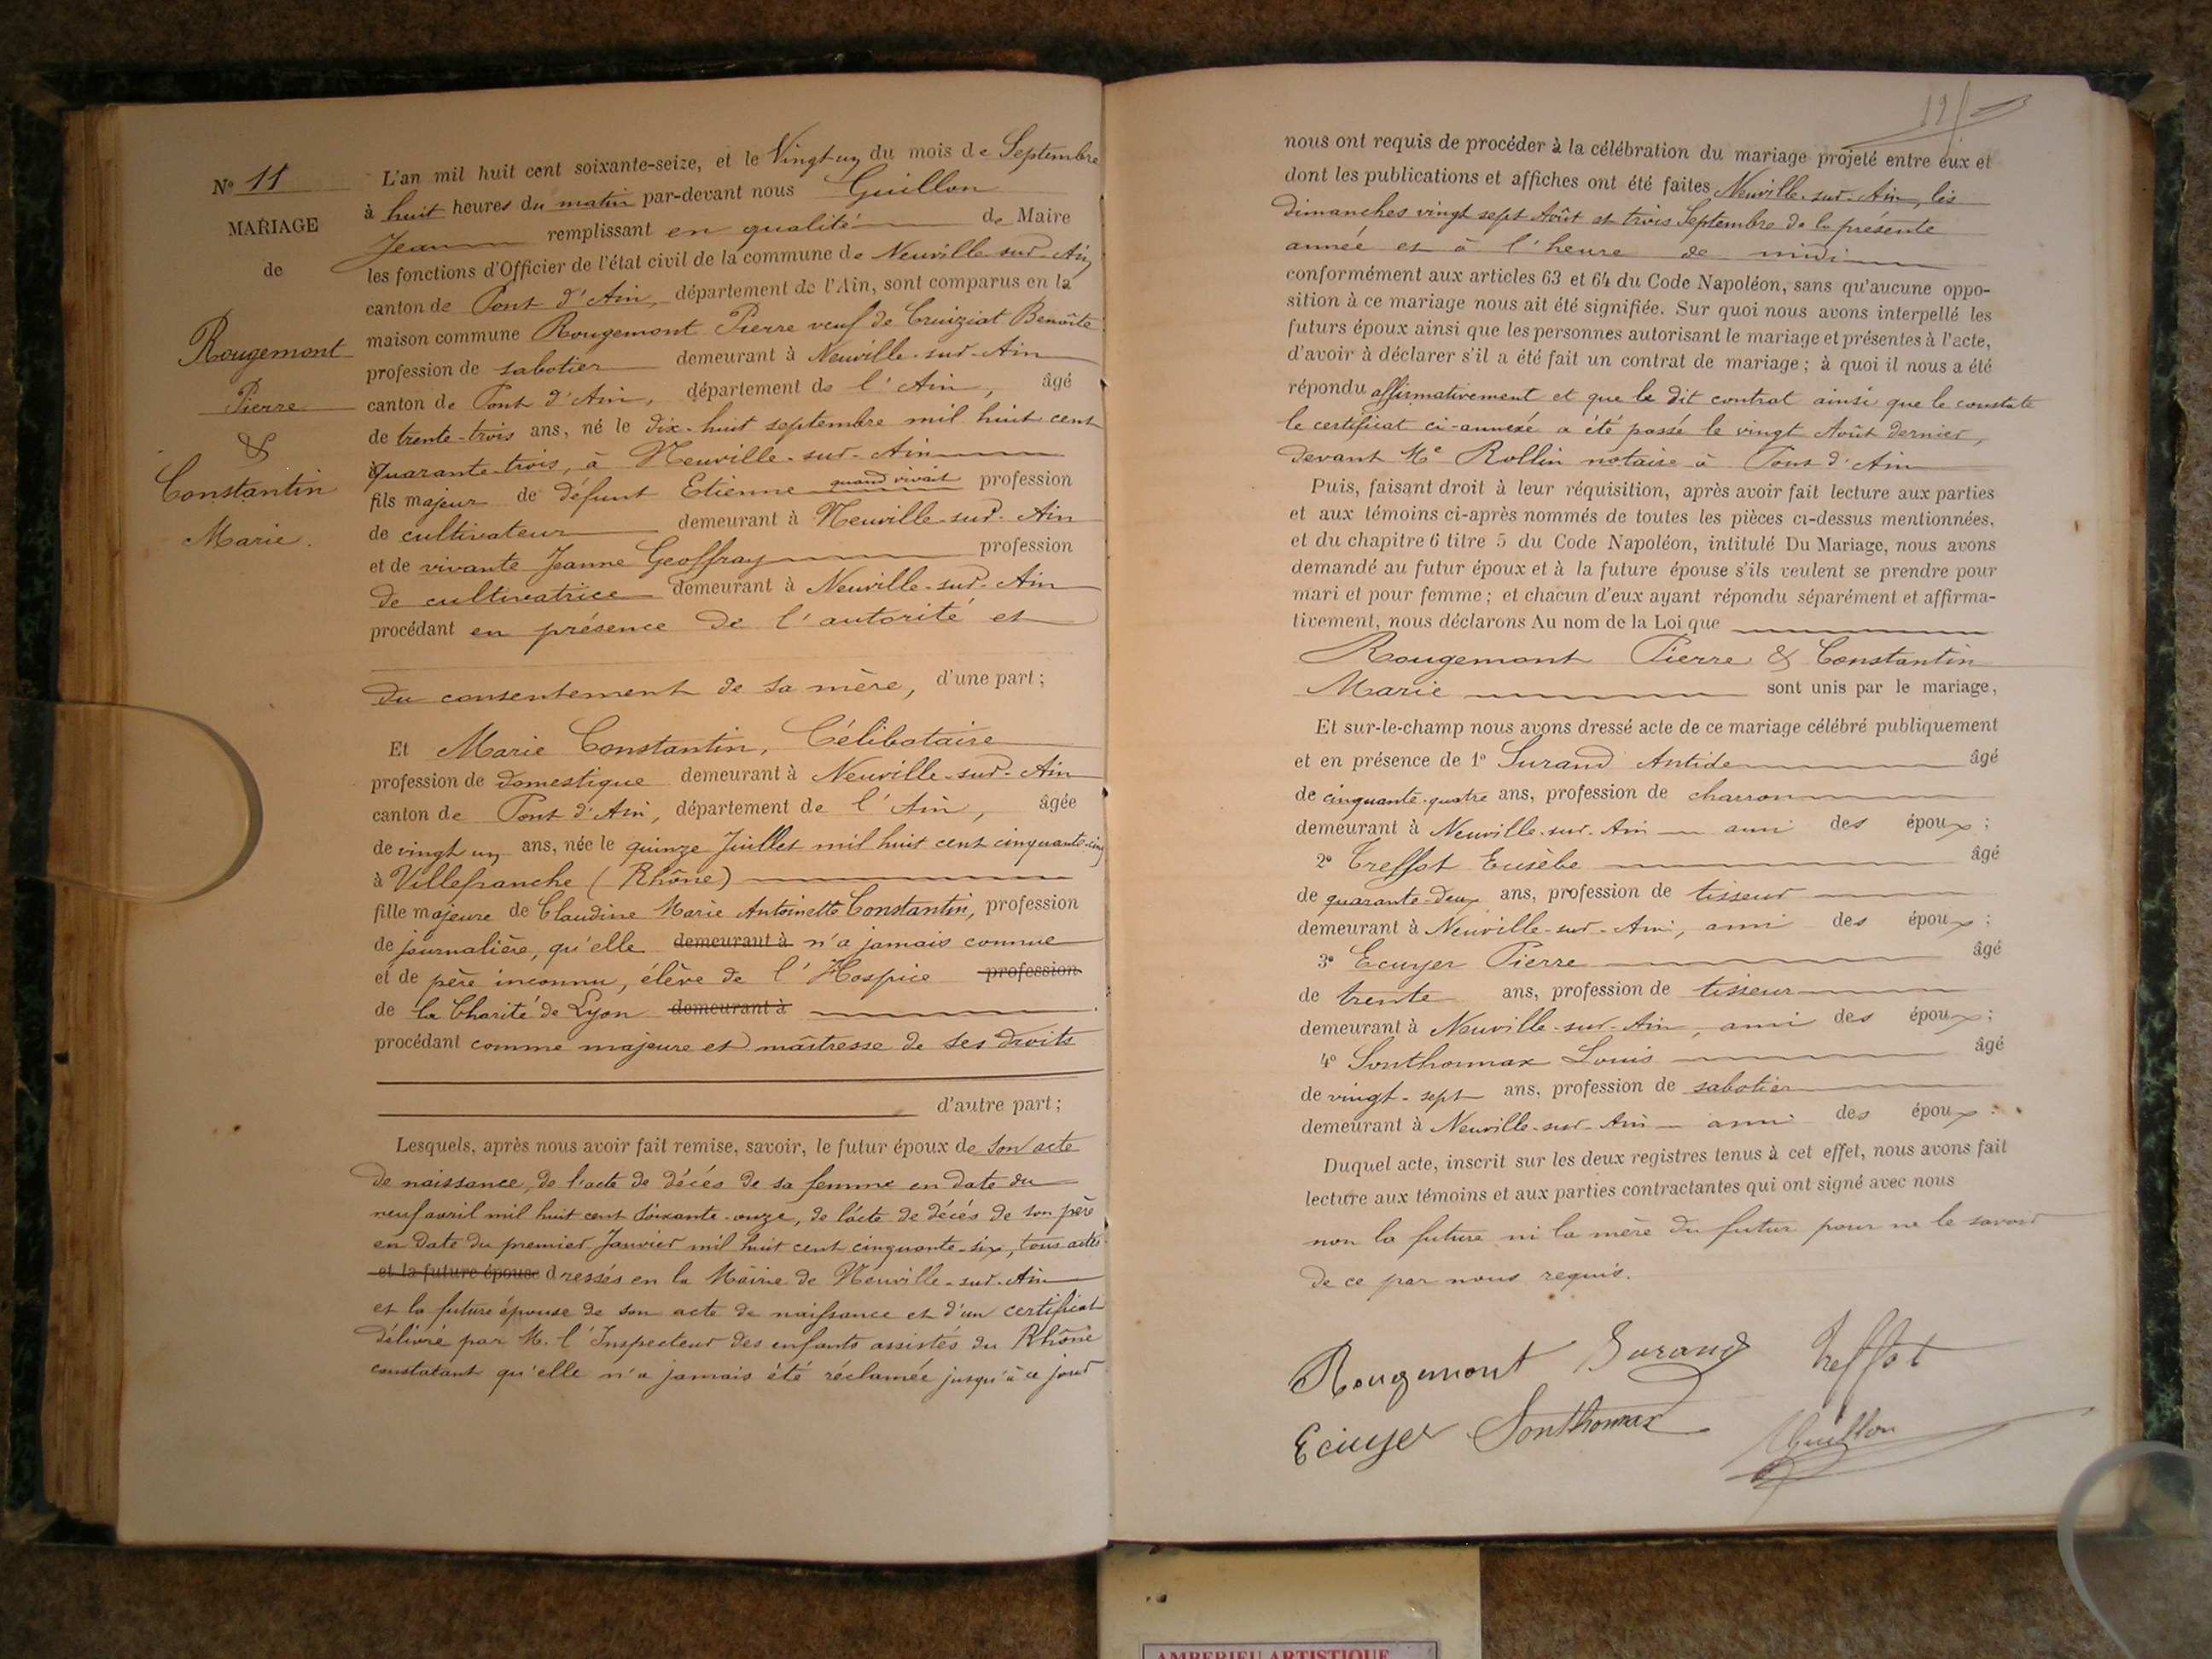 N° 11
MARIAGE
de
Rougemont
Pierre
&
Constantin
Marie.
L'an mil huit cent soixante-seize, et le Vingt un du mois de Septembre
à huit heures du matin par-devant nous Guillon
Jean remplissant en qualité de Maire
les fonctions d'Officier de l'état civil de la commune de Neuville-sur-Ain
canton de Pont d'Ain, département de l'Ain, sont comparus en la
maison commune Rougemont Pierre veuf de Cruiziat Benoîte
profession de sabotier demeurant à Neuville-sur-Ain
canton de Pont d'Ain, département de l'Ain, âgé
de trente-trois ans, né le dix-huit septembre mil huit cent
quarante-trois, à Neuville-sur-Ain
fils majeur de défunt Etienne quand vivait profession
de cultivateur demeurant à Neuville-sur-Ain
et de vivante Jeanne Geoffray profession
de cultivatrice demeurant à Neuville-sur-Ain
procédant en présence de l'autorité et
du consentement de sa mère, d'une part;
Et Marie Constantin, Célibataire
profession de domestique demeurant à Neuville-sur-Ain
canton de Pont d'Ain, département de l'Ain, âgée
de vingt un ans, née le quinze Juillet mil huit cent cinquante-cinq
à Villefranche (Rhône)
fille majeure de Claudine Marie Antoinette Constantin, profession
de journalière, qu'elle demeurant à n'a jamais connue
et de père inconnu, élève de l'Hospice profession
de la Charité de Lyon demeurant à
procédant comme majeure et maîtresse de ses droits
d'autre part;
Lesquels, après nous avoir fait remise, savoir, le futur époux de son acte
de naissance, de l'acte de décés de sa femme en date du
neuf avril mil huit cent soixante-onze, de l'acte de décés de son père
en date du premier Janvier mil huit cent cinquante-six, tous actes
et la future épouse dressés en la Mairie de Neuville-sur-Ain
et la future épouse de son acte de naissance et d'un certificat
délivré par M. l'Inspecteur des enfants assistés du Rhône
constatant qu'elle n'a jamais été réclamée jusqu'à ce jour
nous ont requis de procéder à la célébration du mariage projeté entre eux et
dont les publications et affiches ont été faites Neuville-sur-Ain, les
dimanches vingt sept Août et trois Septembre de la présente
année et à l'heure de midi
conformément aux articles 63 et 64 du Code Napoléon, sans qu'aucune oppo-
sition à ce mariage nous ait été signifiée. Sur quoi nous avons interpellé les
futurs époux ainsi que les personnes autorisant le mariage et présentes à l'acte,
d'avoir à déclarer s'il a été fait un contrat de mariage; à quoi il nous a été
répondu affirmativement et que le dit contrat ainsi que le constate
le certificat ci-annexé a été passé le vingt Août dernier,
devant Me Rollin notaire à Pont d'Ain
Puis, faisant droit à leur réquisition, après avoir fait lecture aux parties
et aux témoins ci-après nommés de toutes les pièces ci-dessus mentionnées,
et du chapitre 6 titre 5 du Code Napoléon, intitulé Du Mariage, nous avons
demandé au futur époux et à la future épouse s'ils veulent se prendre pour
mari et pour femme; et chacun d'eux ayant répondu séparément et affirma-
tivement, nous déclarons Au nom de la Loi que
Rougemont Pierre & Constantin
Marie sont unis par le mariage,
Et sur-le-champ nous avons dressé acte de ce mariage célébré publiquement
et en présence de 1° Surand Antide âgé
de cinquante-quatre ans, profession de charron
demeurant à Neuville-sur-Ain ami des époux;
2° Treffot Eusèbe âgé
de quarante-deux ans, profession de tisseur
demeurant à Neuville-sur-Ain, ami des époux;
3° Ecuyer Pierre âgé
de trente ans, profession de tisseur
demeurant à Neuville-sur-Ain, ami des époux;
4° Sonthonnax Louis âgé
de vingt-sept ans, profession de sabotier
demeurant à Neuville-sur-Ain ami des époux.
Duquel acte, inscrit sur les deux registres tenus à cet effet, nous avons fait
lecture aux témoins et aux parties contractantes qui ont signé avec nous
non la future ni la mère du futur pour ne le savoir
de ce par nous requis.
Rougemont Surand Treffot
Ecuyer Sonthonnax Guillon
AMBERIEU ARTISTIQUE